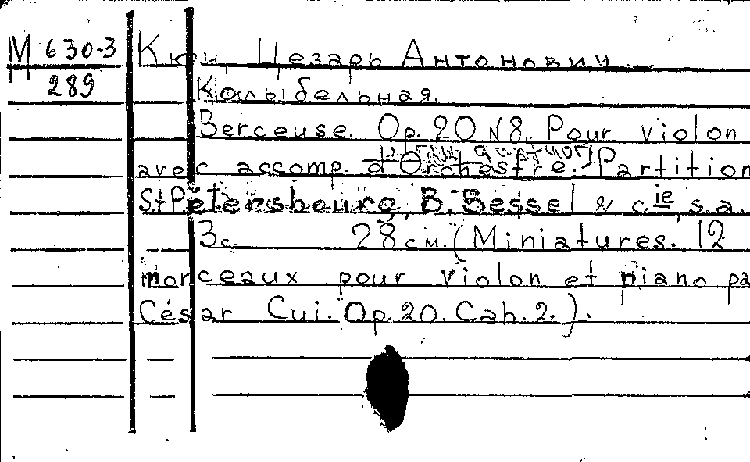 М 630-3
289
Кюи, Цезарь Антонович
Колыбельная.
Berceuse. Op. 20 N 8. Pour violon
avec accomp. d'Orchestre. Partition
St Pétersbourg, B. Bessel & cie, s.a.
3 с. 28 см. (Miniatures. 12
morceaux pour violon et piano pa
César Cui. Op. 20. Cah. 2.).